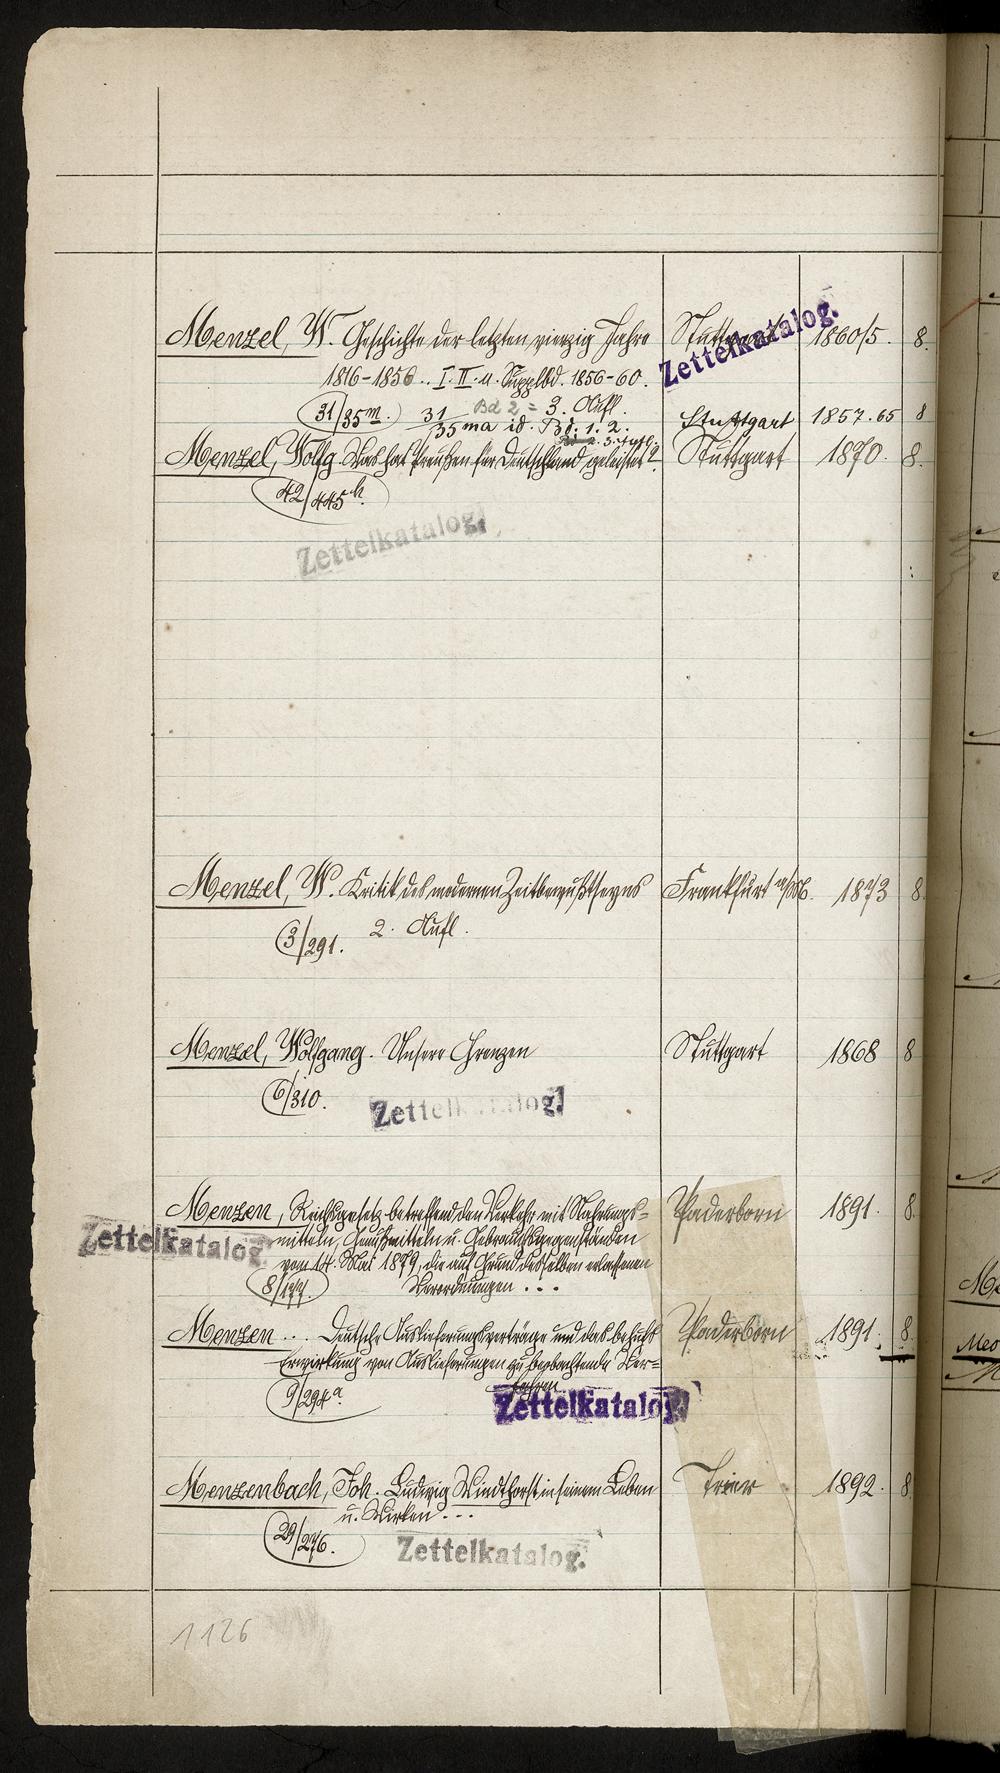 Menzel, W. Geschichte der letzten vierzig Jahre Stuttgart 1860/5. 8.
Zettelkatalog.
1816-1856.. I. II. u. Supplbd. 1856-60.
31/35m. 31/35ma id. Bd. 1. 2. Bd 2 = 3. Aufl. Stuttgart 1857.65 8
Menzel, Wolfg. Was hat Preußen für Deutschland geleistet? Stuttgart 1870. 8.
42/445h.
Zettelkatalog.
Menzel, W. Kritik des modernen Zeitbewußtseyns Frankfurt a/M. 1873 8.
3/291. 2. Aufl.
Menzel, Wolfgang. Unsere Grenzen Stuttgart 1868 8
6/310.
Zettelkatalog.
Menzen, Reichsgesetz betreffend den Verkehr mit Nahrungs= Paderborn 1891. 8.
mitteln, Genußmitteln u. Gebrauchsgegenständen
Zettelkatalog.
vom 14. Mai 1879, die auf Grund desselben erlassenen
8/177. Verordnungen ...
Menzen ... Deutsche Auslieferungsverträge und das behufs Paderborn 1891. 8.
Erwirkung von Auslieferungen zu beobachtende Ver=
9/294a. fahren
Zettelkatalog.
Menzenbach, Joh. Ludwig Windthorst in seinem Leben Trier 1892. 8.
u. Wirken ...
29/276.
Zettelkatalog.
1126